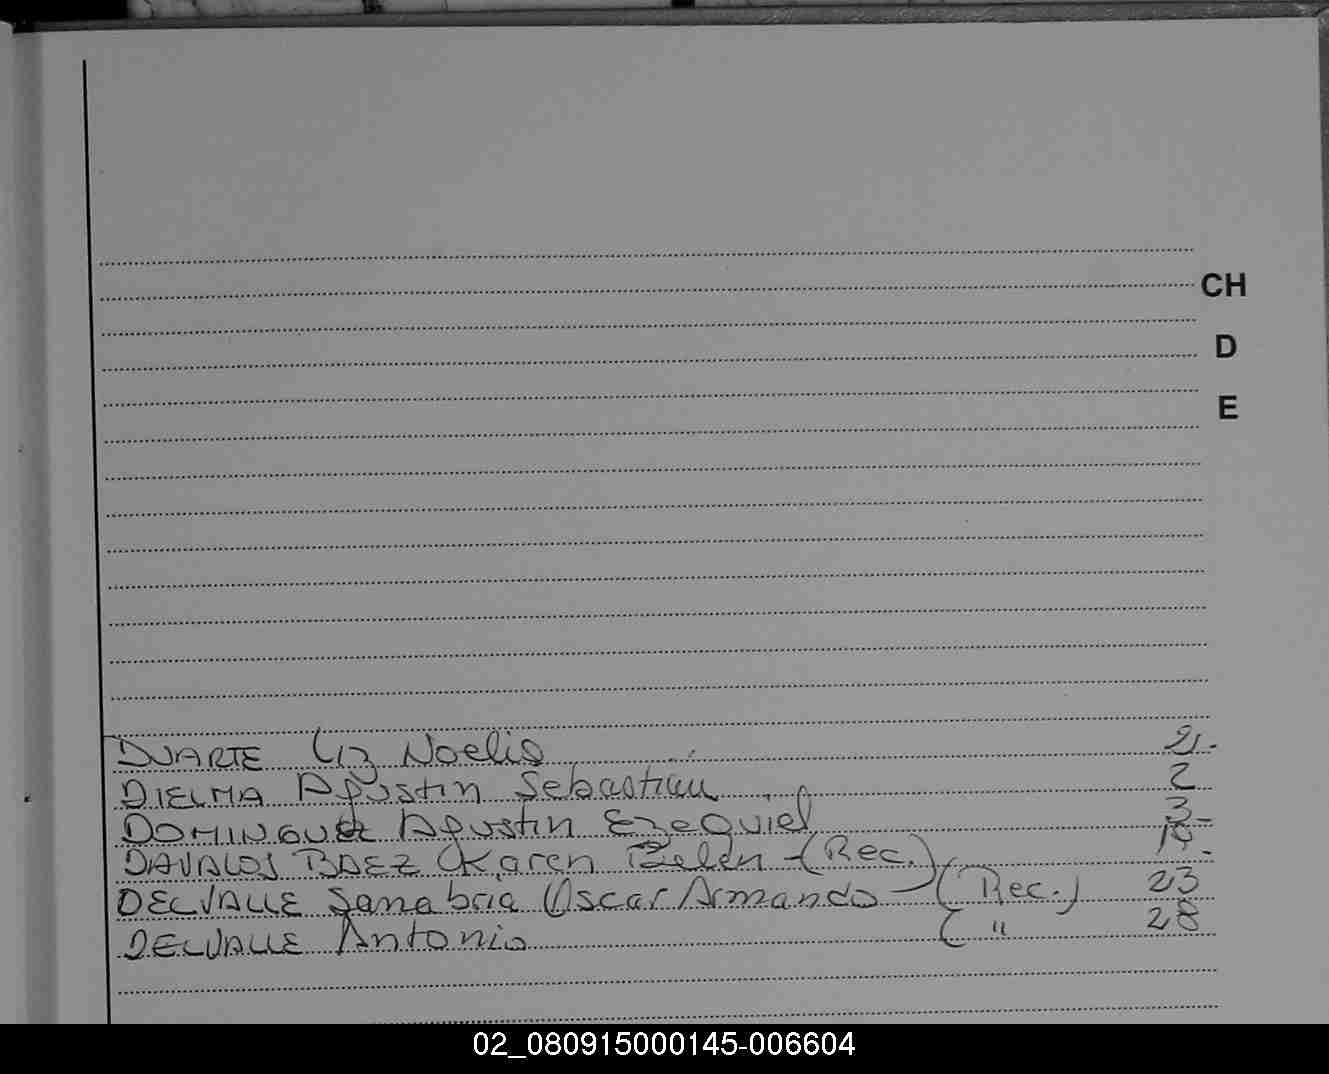 CH
D
E
DUARTE Liz Noelia 21.
DIELMA Agustin Sebastian 2
DOMINGUEZ Agustin Ezequiel 3-
DAVALOS BAEZ Karen Belén - (Rec.)
DELVALLE Sanabria Oscar Armando - (Rec.) 23
DELVALLE Antonio ( " 28
02_080915000145-006604